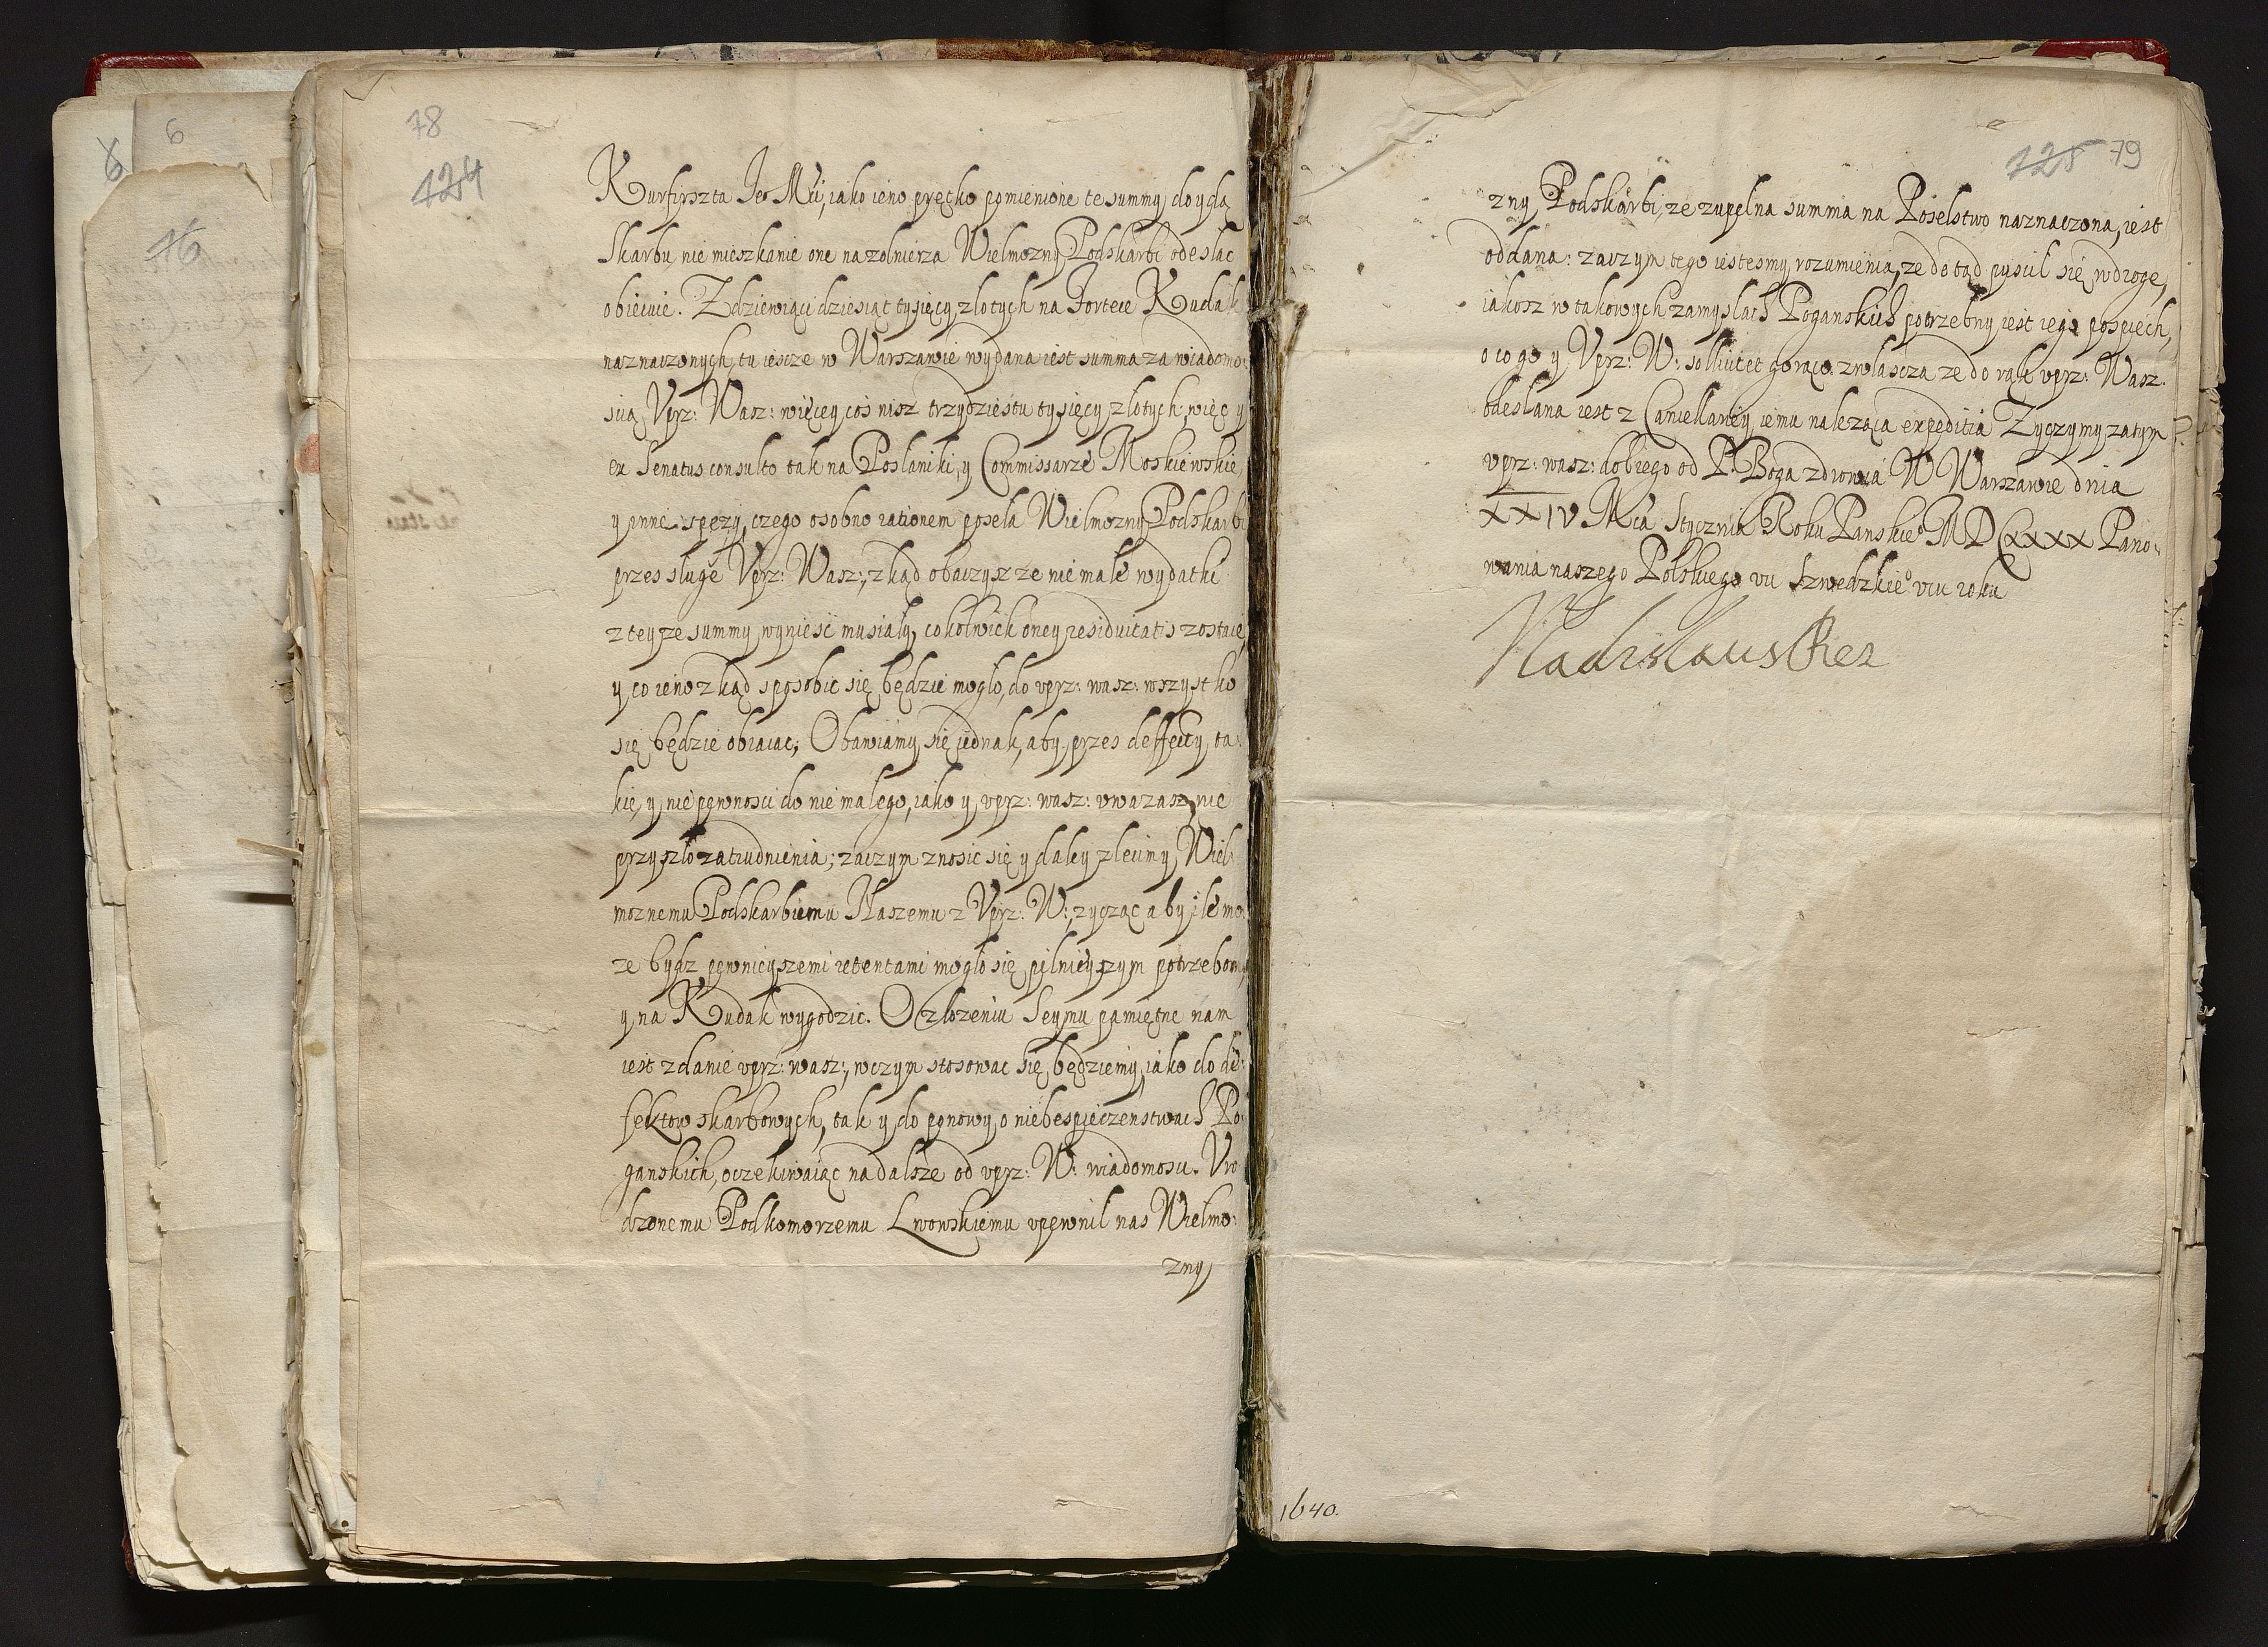 78
424
Kurfirszta Je° Mći, iako ieno prętko pomienione te summy doydą
Skarbu, nie mieszkanie one na zolnierza Wielmozny Podskarbi odesłac
obiecuie. Z dziewiąci dziesiąt tysięcy zlotych na Fortece Kudak
naznaczonych, tu iescze w Warszawie wydana iest summa za wiadomo-
scią Vprz: Wasz: więcey cos nisz trzydziestu tysięcy zlotych, więc y
ex Senatus consulto tak na Poslaniki, y Commissarze Moskiewskie,
y inne spezy, czego osobno rationem posela Wielmozny Podskarbi
przes sługę Vprz: Wasz:, zkąd obaczysz ze nie małe wydatki
z teyze summy wynieść musiały, cokolwiek oney residuitatis zostaie,
y co ieno zkąd sposobic się będzie mogło, do vprz: wasz: wszystko
się będzie obracac; Obawiamy się iednak, aby przes deffecty ta-
kie, y nie pewnosci do nie malego, iako y vprz: wasz: vwazasz, nie
przyszlo zatrudnienia; zaczym znosic się y daley zlecimy Wiel-
moznemu Podskarbiemu Naszemu z Vprz: W: zycząc aby ile mo-
ze bydz pewnieyszemi retentami mogło się pilnieyszym potrzebom,
y na Kudak wygodzic. O zlozeniu Seymu pamiętne nam
iest zdanie vprz: wasz:, w czym stosowac się będziemy, iako do de-
fektow skarbowych, tak y do ponowy o niebespieczenstwach Po-
ganskich, oczekiwaiąc na dalsze od vprz: W: wiadomosci. Vro
dzonemu Podkomorzemu Lwowskiemu vpewnil nas Wielmo-
zny
125 79
zny Podskarbi, ze zupelna summa na Poselstwo naznaczona, iest
oddana: zaczym tego iestesmy rozumienia, ze do tąd puscil się w droge,
iakosz w takowych zamyslach Poganskich potrzebny iest iego pospiech,
o co go y Vprz: W: sollicitet gorąco. zwlascza ze do rąk vprz: Wasz:
odeslana iest z Cancellariey iemu nalezaca expeditia Zyczymy zatym
vprz: wasz: dobrego od P. Boga zdrowia W Warszawie dnia
XXIV Mca Stycznia Roku Panskie° MDCXXXX Pano-
wania naszego Polskiego VII Szwedzkie° VIII roku
Vladislaus Rex
1640.
6
6
76